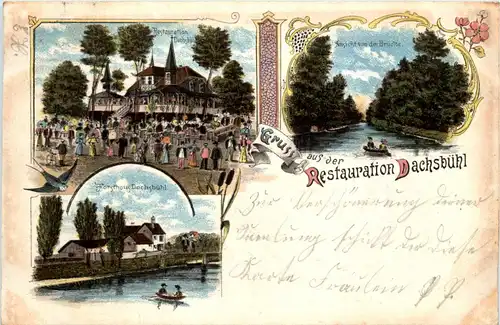 Restauration
Dachsbühl
Ansicht von der Brücke
Gruss aus der
Restauration Dachsbühl
Forsthaus Dachsbühl
Zur Verschönerung deiner
Samlung schickt dir diese
Karte Fräulein